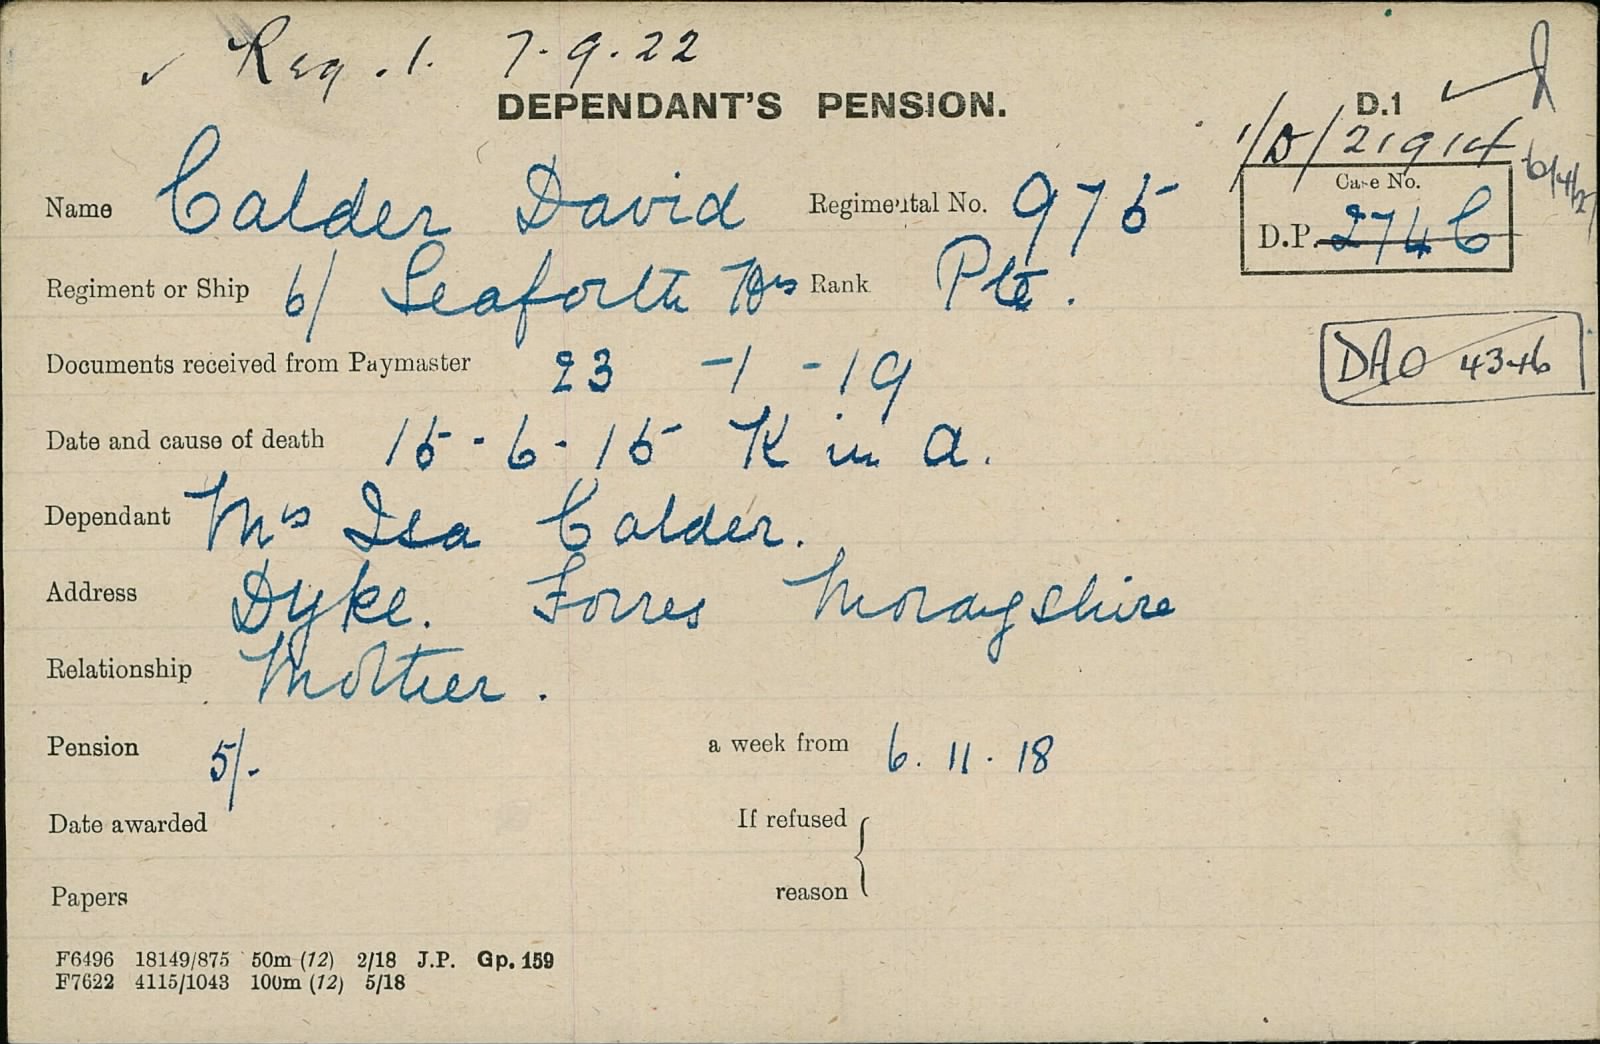 Reg. 1. 7.9.22
DEPENDANT'S PENSION. D.1
1/D/21914
6/4/27
Name Calder David Regimental No. 975
Case No.
D.P. 274 C
Regiment or Ship 6/ Seaforth Hrs Rank Pte.
DAO 4346
Documents received from Paymaster 23 -1 -19
Date and cause of death 15-6-15 K in A.
Dependant Mrs Isa Calder.
Address Dyke. Forres Morayshire
Relationship Mother.
Pension 5/- a week from 6.11.18
Date awarded If refused
Papers reason
F6496 18149/875 50m (12) 2/18 J.P. Gp. 159
F7622 4115/1043 100m (12) 5/18